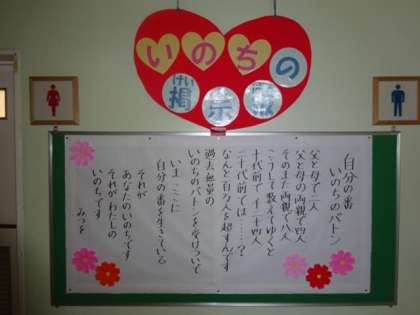 いのちの
掲示板
けい
じ
ばん
自分の番
いのちのバトン
父と母で二人
父と母の両親で四人
そのまた両親で八人
こうして数えてゆくと
十代前で千二十四人
二十代前では……?
なんと百万人を超すんです
過去無量の
いのちのバトンを受けついで
いまここに
自分の番を生きている
それが
あなたのいのちです
それがわたしの
いのちです
みつを